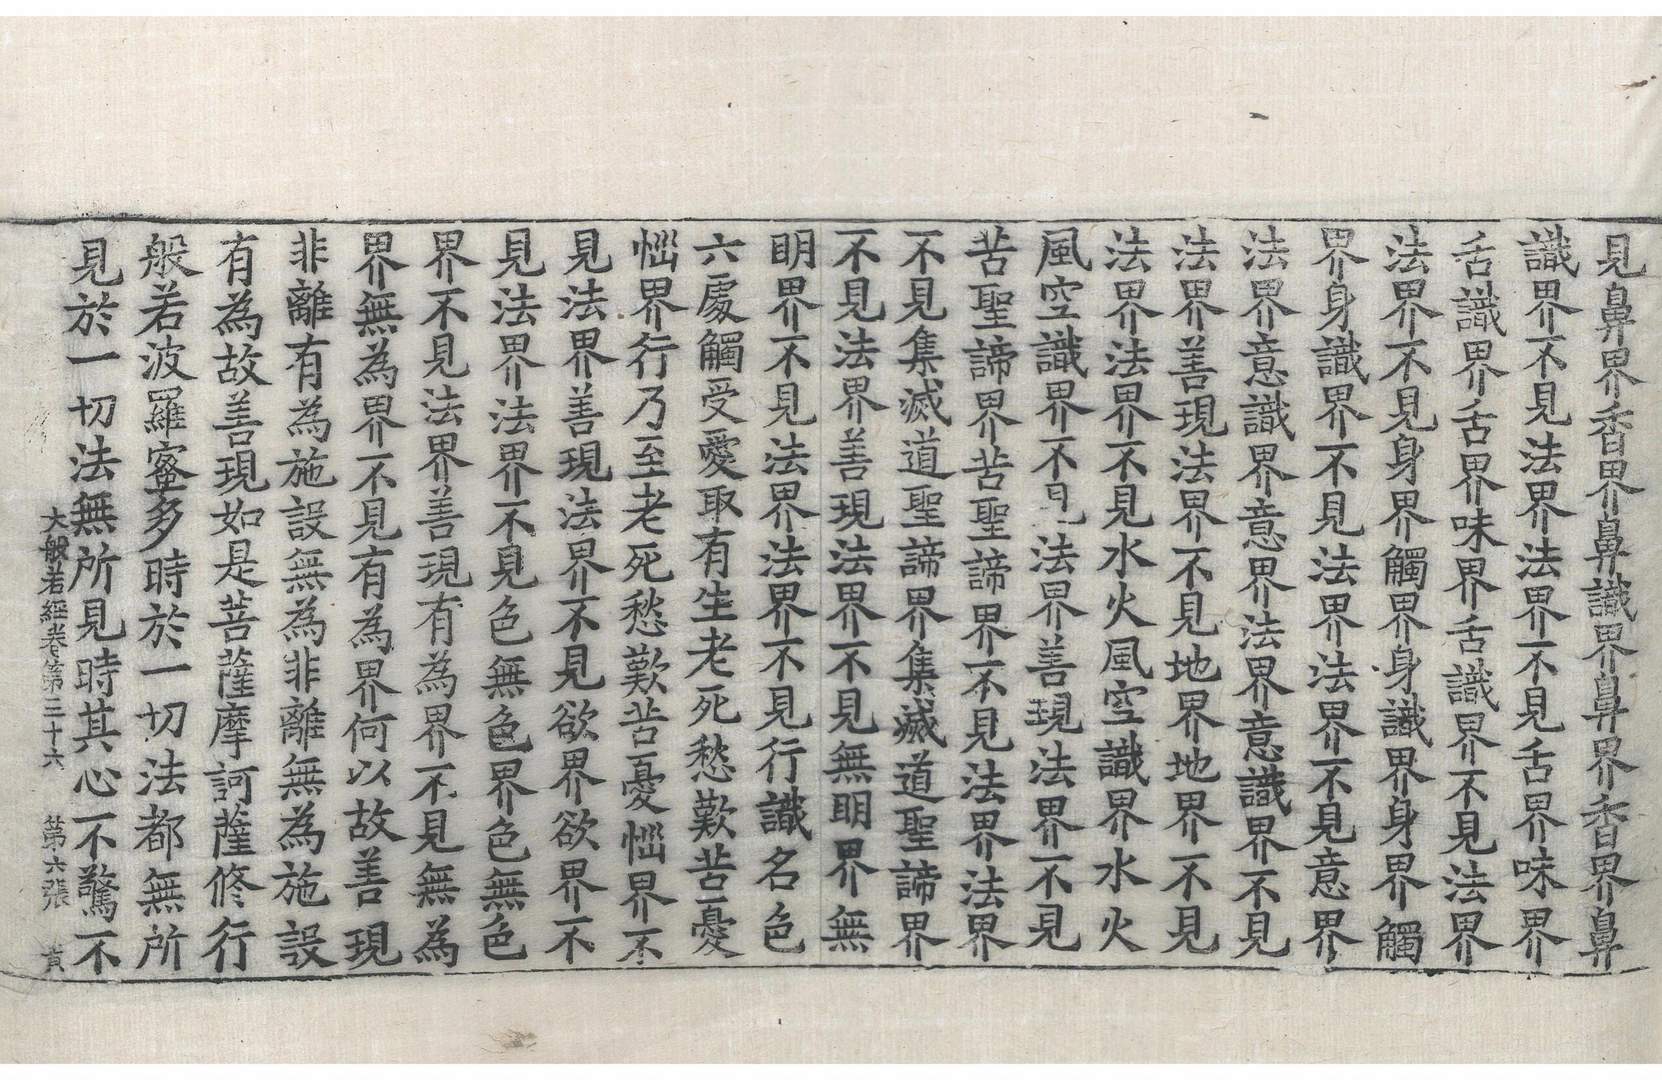 見鼻界香界鼻識界鼻界香界鼻
識界不見法界法界不見舌界味界
舌識界舌界味界舌識界不見法界
法界不見身界觸界身識界身界觸
界身識界不見法界法界不見意界
法界意識界意界法界意識界不見
法界善現法界不見地界地界不見
法界法界不見水火風空識界水火
風空識界不見法界善現法界不見
苦聖諦界苦聖諦界不見法界法界
不見集滅道聖諦界集滅道聖諦界
不見法界善現法界不見無眀界無
眀界不見法界法界不見行識名色
六處觸受愛取有生老死愁歎苦憂
惱界行乃至老死愁歎苦憂惱界不
見法界善現法界不見欲界欲界不
見法界法界不見色無色界色無色
界不見法界善現有為界不見無為
界無為界不見有為界何以故善現
非離有為施設無為非離無為施設
有為故善現如是菩薩摩訶薩修行
般若波羅蜜多時於一切法都無所
見於一切法無所見時其心不驚不
大般若經卷第三十六 第六張 黃